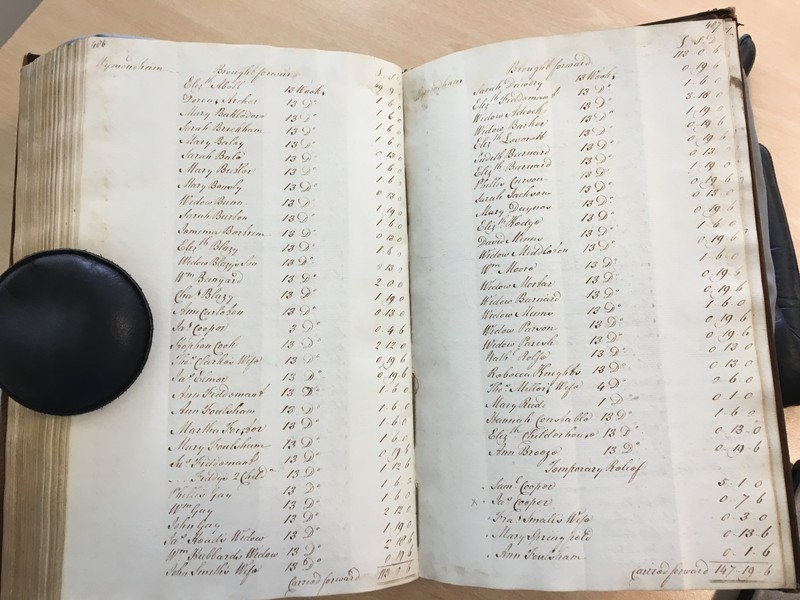 486
Wymondham Brought forward £ S D
Eliz.th Abell 13 Weeks
Dorcas Archer 13 D.o 1 6 0
Mary 13 D.o 1 6 0
Sarah Beckham 13 D.o 1 6 0
Mary Balay 13 D.o 1 6 0
Sarah Bals 13 D.o 1 6 0
Mary Butler 13 D.o 1 6 0
Mary Bensly 13 D.o 0 13 0
Widow Bunn 13 D.o 1 19 0
Sarah Burton 13 D.o 1 6 0
13 D.o 0 13 0
Eliz.th Blazy 13 D.o 1 6 0
Widow Blazys Son 13 D.o 0 13 0
W.m Bangard 13 D.o 2 0 0
Cha.s Blazy 13 D.o 1 19 0
Ann Carleton 13 D.o 0 13 0
Ja.s Cooper 3 D.o 0 4 6
Stephen Cook 13 D.o 2 12 0
Tho.s Clarkes Wife 13 D.o 0 19 6
Ja.s Elmer 13 D.o 0 19 6
Ann Fiddamant 13 D.o 1 6 0
Ann Foulsham 13 D.o 1 6 0
Martha Forster 13 D.o 1 6 0
Mary Foulsham 13 D.o 1 6 0
Fiddamant 13 D.o 0 19 6
2 Child.n 13 D.o 1 12 6
Phillis Gay 13 D.o 1 6 0
W.m Gay 13 D.o 2 12 0
John Gay 13 D.o 1 19 0
Ja.s Heads Widow 13 D.o
W.m Hubbards Widow 13 D.o 0 19 6
John Smith's Wife 13 D.o
Carried forward 113 0 6
487
Wymondham Brought forward £ S D
113 0 6
Sarah 13 Weeks 0 19 6
Eliz.th Fiddamant 13 D.o 1 6 0
Widow Adcock 13 D.o 3 18 0
Widow Barker 13 D.o 1 19 0
Eliz.th 13 D.o 0 19 6
Judith Barnard 13 D.o 0 19 6
Eliz.th Barnard 13 D.o 0 13
Phillis Curson 13 D.o 1 19 0
Sarah Jackson 13 D.o 0 19 6
Mary Daynes 13 D.o 0 13 0
Eliz.th Hedge 13 D.o 0 19 6
David Minns 13 D.o 1 6 0
Widow 13 D.o
W.m Moore 13 D.o 1 6 0
Widow 13 D.o 0 19 6
Widow Barnard 13 D.o 0 19 6
Widow Minns 13 D.o 1 6 0
Widow Parson 13 D.o 0 19 6
Widow Parish 13 D.o 0 19 6
Nath.l Rolfe 13 D.o 0 13 0
Rebecca Knights 13 D.o 0 13 0
Tho.s Millers Wife 4 D.o 0 6 0
Mary Rude 1 D.o 0 1 0
Hannah Constable 13 D.o 1 6 0
Eliz.th Childerhouse 13 D.o 0 13 0
Ann Breeze 13 D.o 0 19 6
Temporary Relief
Sam.l Cooper 5 1 0
Ja.s Cooper 0 7 6
Fra.s Smiths Wife 0 3 0
Mary 0 13 6
Ann Foulsham 0 1 6
Carried forward 147 19 6